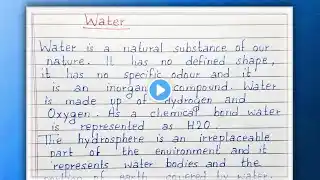 Water
Water is a natural substance of our
nature. It has no defined shape,
it has no specific odour and it
is an inorganic compound. Water
is made up of Hydrogen and
Oxygen. As a chemical bond water
is represented as H2O.
The hydrosphere is an irreplaceable
part of the environment and it
represents water bodies and the
of earth covered by water.